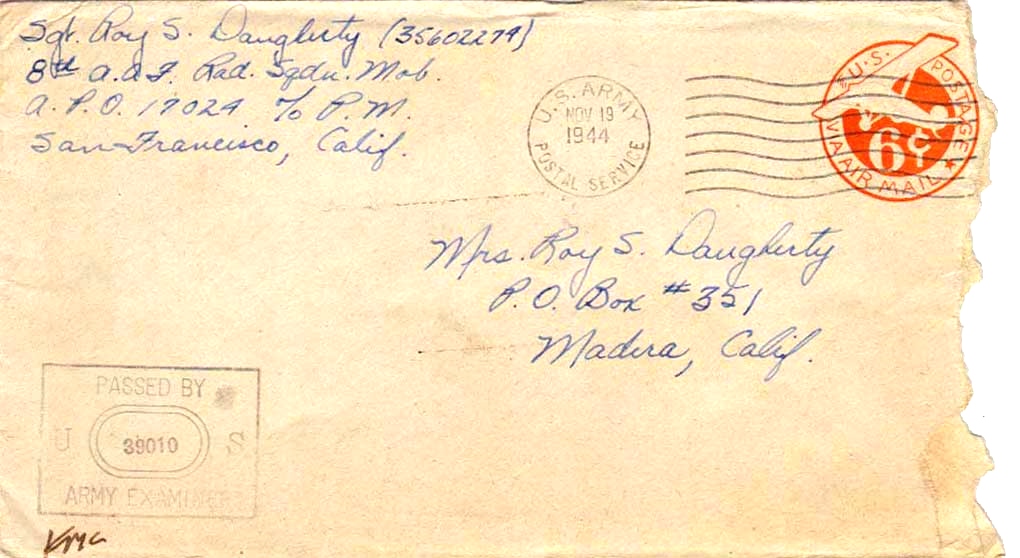 Sgt. Roy S. Daugherty (35602274)
8th A.A.F. Rad. Sqdn. Mob.
A.P.O. 17024 c/o P.M.
San Francisco, Calif.
U.S. ARMY
NOV 19
1944
POSTAL SERVICE
U.S. POSTAGE
6¢
VIA AIR MAIL
Mrs. Roy S. Daugherty
P.O. Box #351
Madera, Calif.
PASSED BY
U 39010 S
ARMY EXAMINER